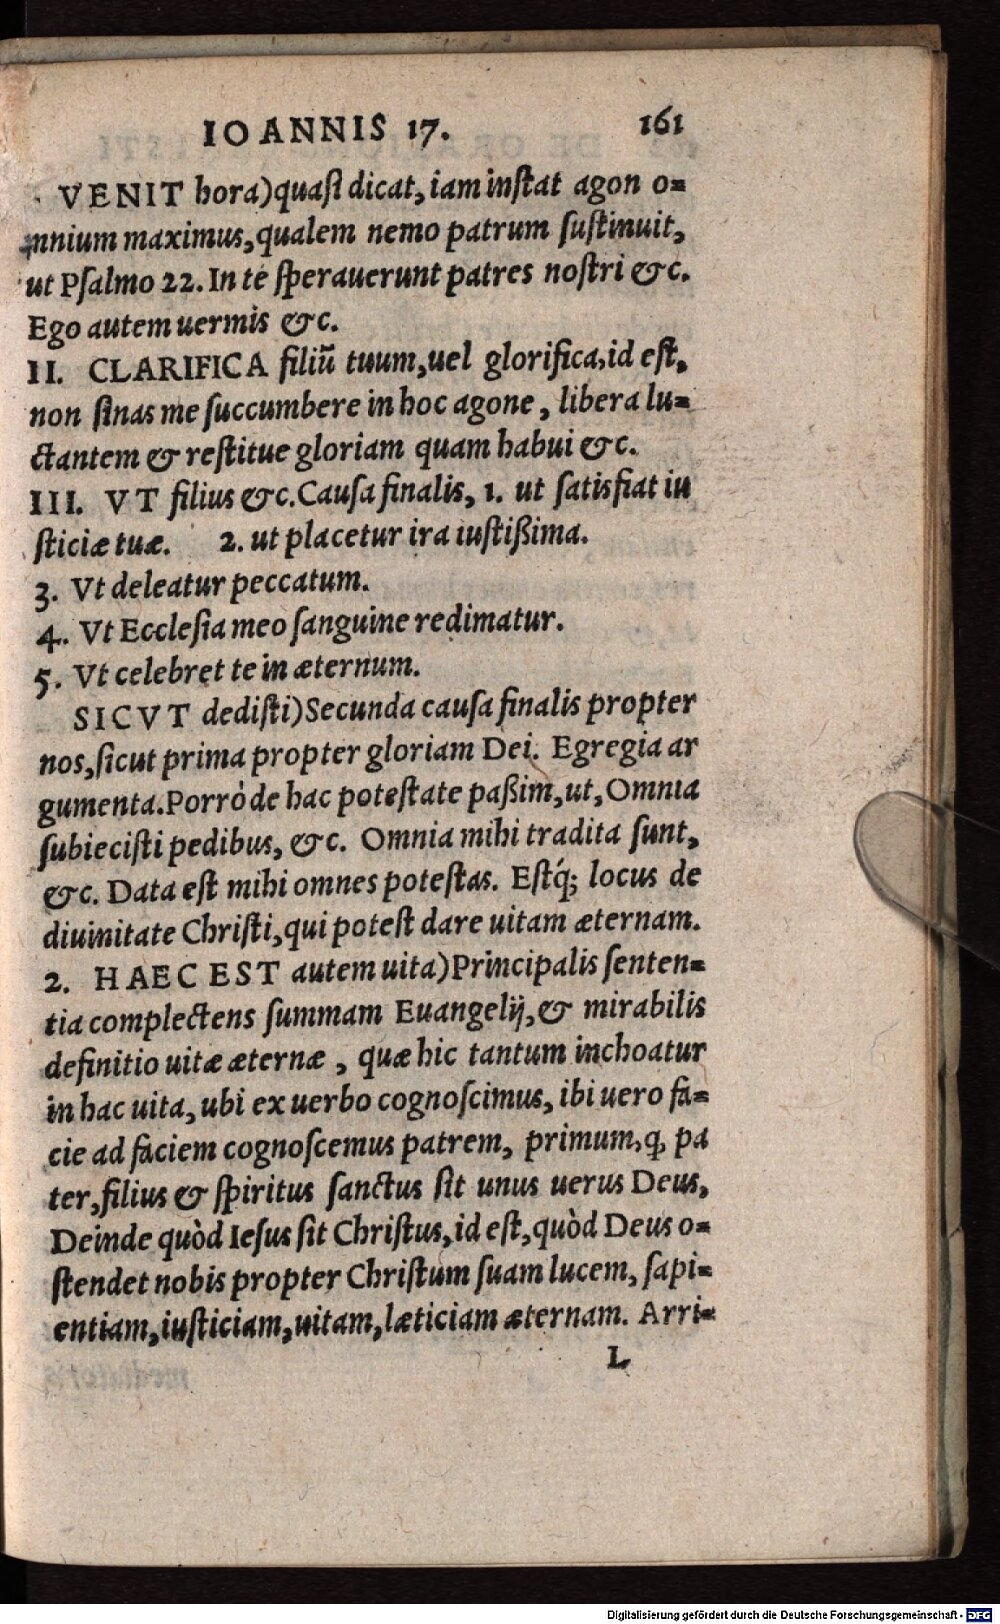 IOANNIS 17. 161
VENIT hora) quasi dicat, iam instat agon o=
mnium maximus, qualem nemo patrum sustinuit,
ut Psalmo 22. In te sperauerunt patres nostri &c.
Ego autem uermis &c.
II. CLARIFICA filiũ tuum, uel glorifica, id est,
non sinas me succumbere in hoc agone, libera lu=
ctantem & restitue gloriam quam habui &c.
III. VT filius &c. Causa finalis, 1. ut satisfiat iu
sticiæ tuæ. 2. ut placetur ira iustißima.
3. Vt deleatur peccatum.
4. Vt Ecclesia meo sanguine redimatur.
5. Vt celebret te in æternum.
SICVT dedisti) Secunda causa finalis propter
nos, sicut prima propter gloriam Dei. Egregia ar
gumenta. Porrò de hac potestate paßim, ut, Omnia
subiecisti pedibus, &c. Omnia mihi tradita sunt,
&c. Data est mihi omnes potestas. Estq́; locus de
diuinitate Christi, qui potest dare uitam æternam.
2. HAEC EST autem uita) Principalis senten=
tia complectens summam Euangelij, & mirabilis
definitio uitæ æternæ, quæ hic tantum inchoatur
in hac uita, ubi ex uerbo cognoscimus, ibi uero fa=
cie ad faciem cognoscemus patrem, primum, ꝙ pa
ter, filius & spiritus sanctus sit unus uerus Deus,
Deinde quòd Iesus sit Christus, id est, quòd Deus o=
stendet nobis propter Christum suam lucem, sapi=
entiam, iusticiam, uitam, læticiam æternam. Arri=
L
Digitalisierung gefördert durch die Deutsche Forschungsgemeinschaft - DFG